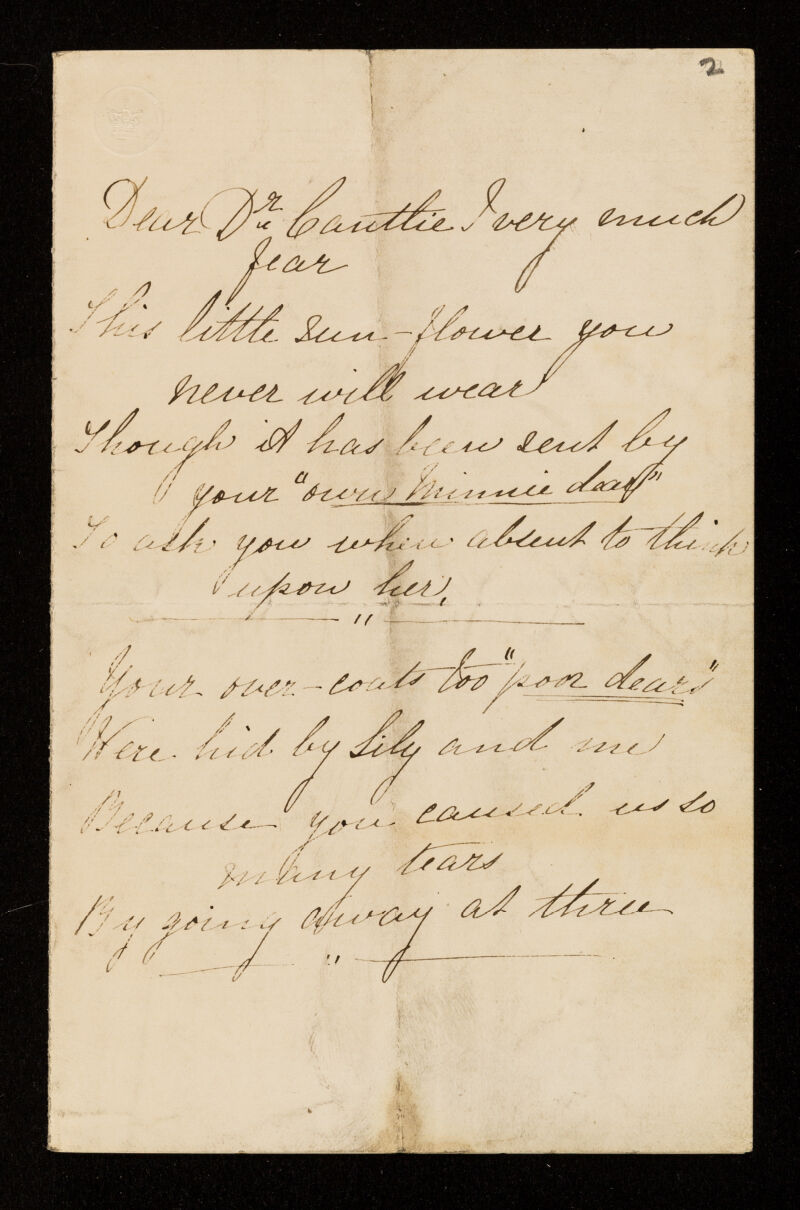 2
Dear Dr Cantlie I very much
fear
This little sun-flower you
never will wear
Though it has been sent by
your "own Minnie dear"
To ask you when absent to think
upon her.
Your over-coats too "poor dears"
Were hid by Lily and me
Because you caused us so
many tears
By going away at three